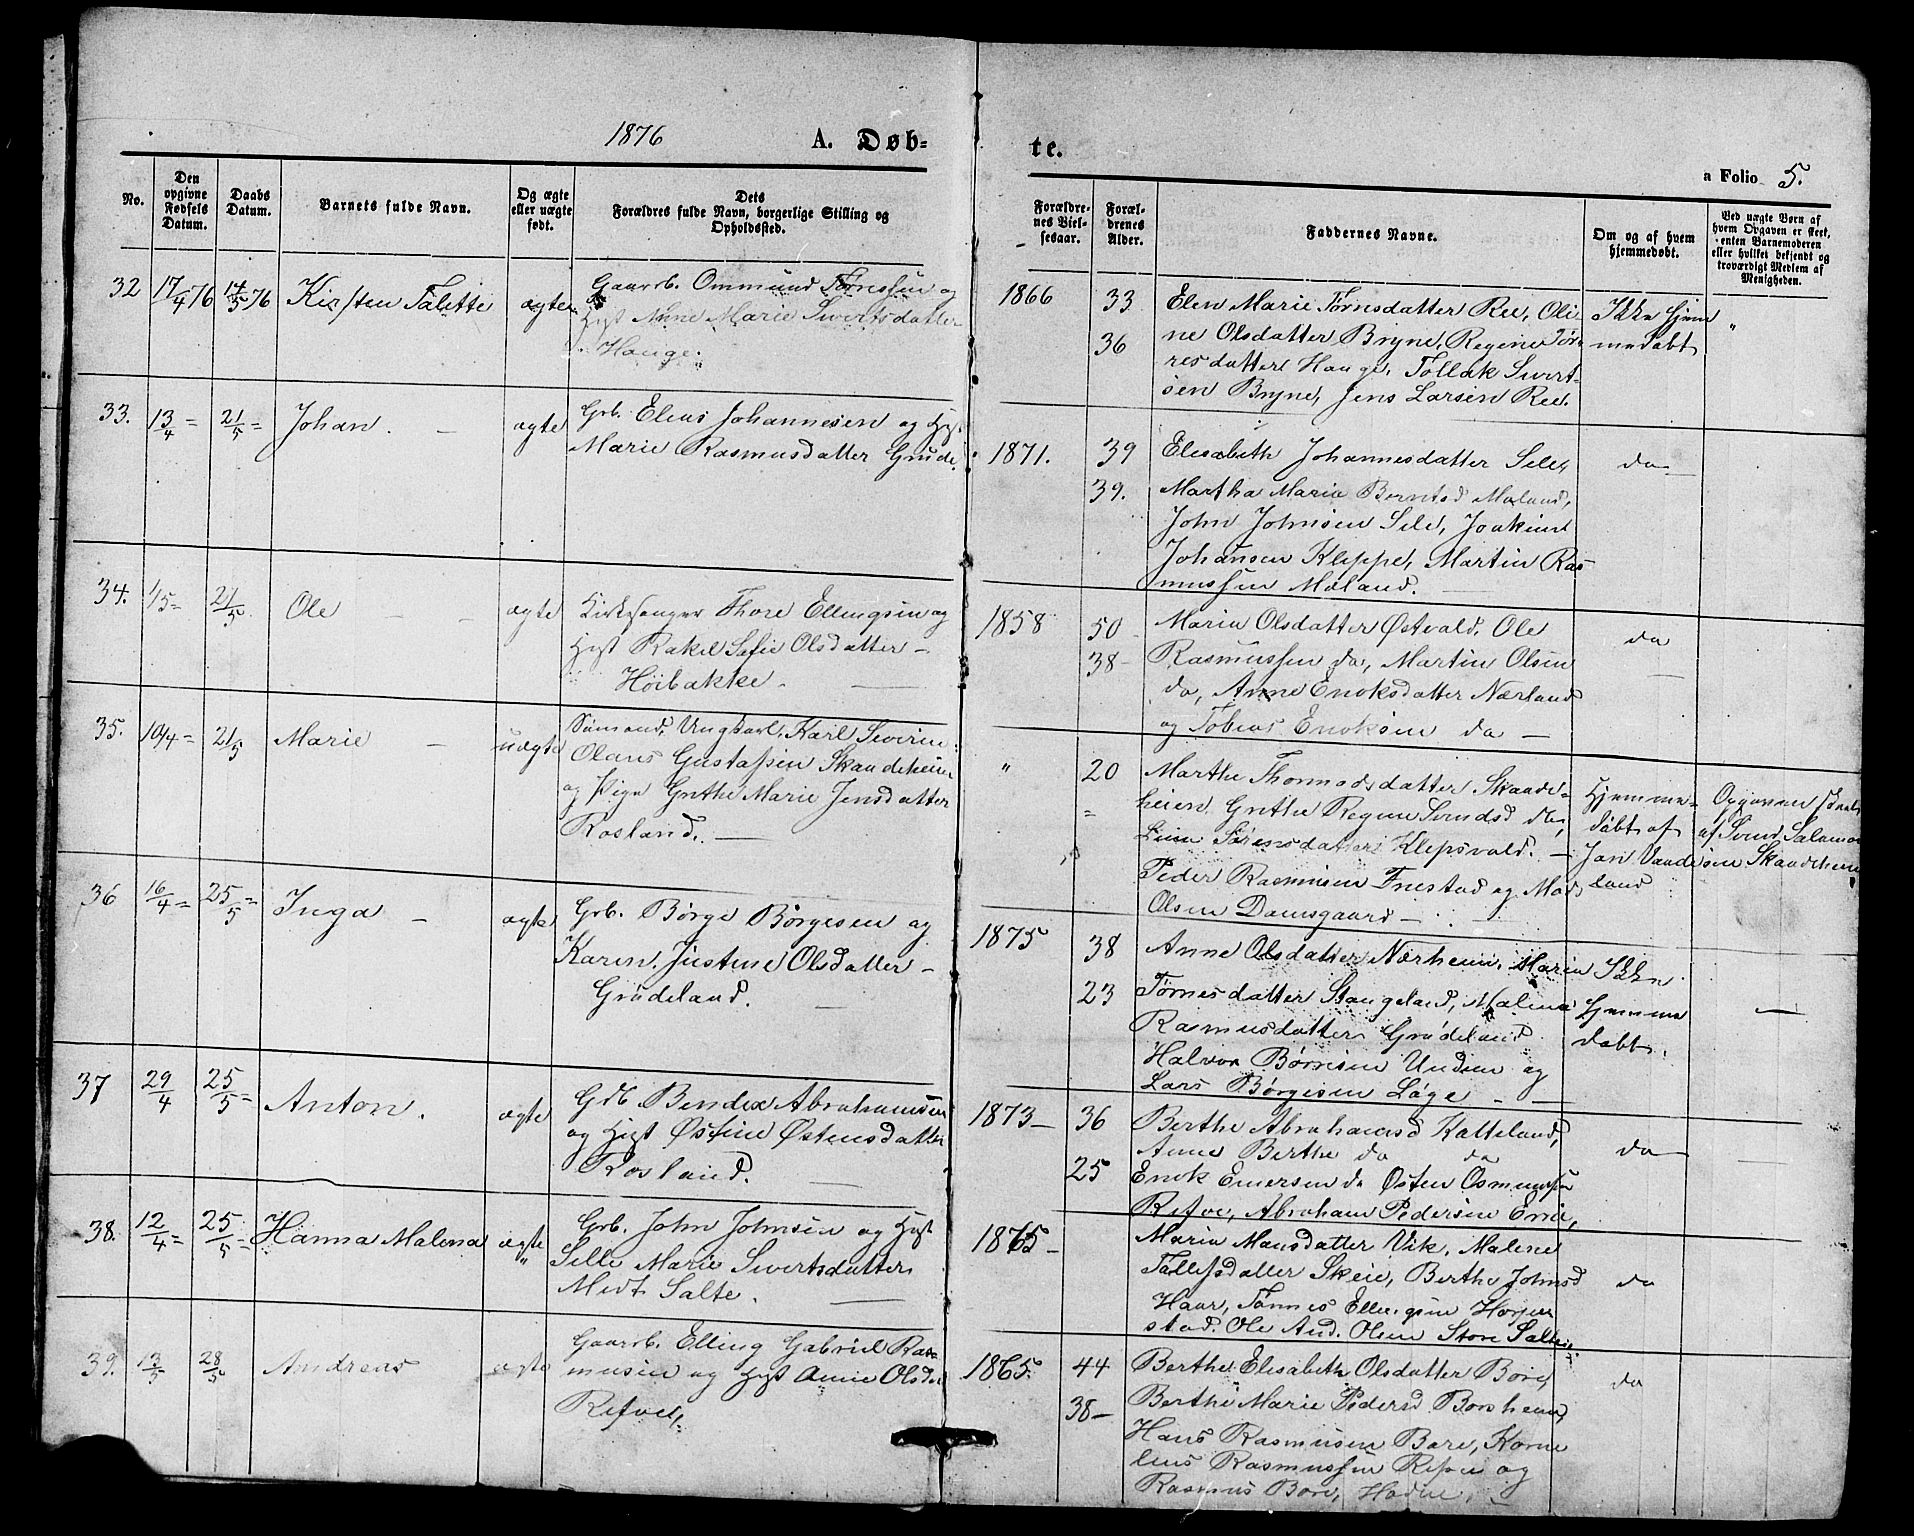 1876 A. Døb-
te.
a Folio 5.
No.
Den opgivne Fødsels Datum.
Daabs Datum.
Barnets fulde Navn.
Og ægte eller uægte født.
Dets Forældres fulde Navn, borgerlige Stilling og Opholdssted.
Forældre-nes Viel-sesaar.
Foræl-drenes Alder.
Faddernes Navne.
Om og af hvem hjemmedøbt.
Ved uægte Børn af hvem Opgaven er skeet, enten Barnemoderen eller hvilket bekjendt og troværdigt Medlem af Menigheden.
32 17/4 76 14/5 76 Kirsten Talette ægte
Gaardb. Ommund Tørresen og
Hust Anne Marie Sivertsdatter
Hauge.
1866 33 36
Elen Marie Tørnsdatter Ree, Oli-
ne Olsdatter Bryne, Regene Tør-
resdatter Hauge, Tollak Sivert-
sen Bryne, Jens Larsen Ree.
Ikke hjem
medøbt "
33. 13/4 = 21/5 = Johan. — ægte
Grb. Elias Johannesen og Hst.
Marie Rasmusdatter Grude.
1871. 39 39.
Elisabeth Johannesdatter Sele,
Martha Marie Berntsd Møland,
John Johnsen Sele, Joakim
Johansen Kleppe, Martin Ras-
mussen Møland.
da
34. 1/5 = 21/5 Ole ægte
Kirkesanger Thore Ellingsen og
Hust Rakel Sofie Olsdatter —
Höibakke.
1858 50 38-
Maria Olsdatter Østvald, Ole
Rasmussen da, Martin Olsen
da, Anne Enoksdatter Nærland
og Tobias Enoksen da —
da
35. 10/4 = 21/5 Marie — uægte
Sömand, Ungkarl, Karl Severin
Olaus Gustafsen Skandeheien
og Pige Grethe Marie Jensdatter
Rosland. —
" 20 =
Marthe Thomasdatter Skaade-
heien, Grethe Regine Svendsd da,
Sørensdatter Klepsvald. —
Peder Rasmusen Fuestad og Mads
Olsen Damsgaard —
Hjemme-
døbt af
Jan Vaade
land
Opgaven skeet
af Svend Salamon
sen Skandehien
36 16/4 = 25/5 = Inga — ægte
Grb. Börge Börgesen og
Karen Justine Olsdatter —
Grödeland.
1875 38 23
Anne Olsdatter Nærheim, Maria
Tørnesdatter Stangeland, Malena
Rasmusdatter Grödeland
Halvor Børresen Undem og
Lars Børgesen Løge — —
Ikke
hjemme
døbt.
37 29/4 25/5 = Anton. ægte
Grb. Bendix Abrahamsen
og Hust Østine Østensdatter
Rosland.
1873 — 36 25
Berthe Abrahamsd Katteland,
Anne Berthe da da
Enok Enersen da Østen Osmundsen
Refve, Abraham Pedersen Erie,
da
38. 12/4 = 25/5 = Hanna Malena ægte
Grb. John Johnsen og Hust
Sille Marie Sivertsdatter
Midt Salte.
1865 —
Maria Mansdatter Vik, Malene
Tallefsdatter Skeie, Berthe Johnsd
Haar, Tønnes Ellingsen Horpe
stad. Ole And. Olsen Store Salte
da
39. 13/5 28/5 Andreas ægte
Gaardb. Elling Gabriel Ras-
musen og Hust Anne Olsdr
Refve,
1865. 44 38-
Berthe Elisabeth Olsdatter Bore,
Berthe Marie Pedersd Borsheim,
Hans Rasmusen Bore, Korne
lius Rasmussen Refve og
Rasmus Bore, Hodne,
da